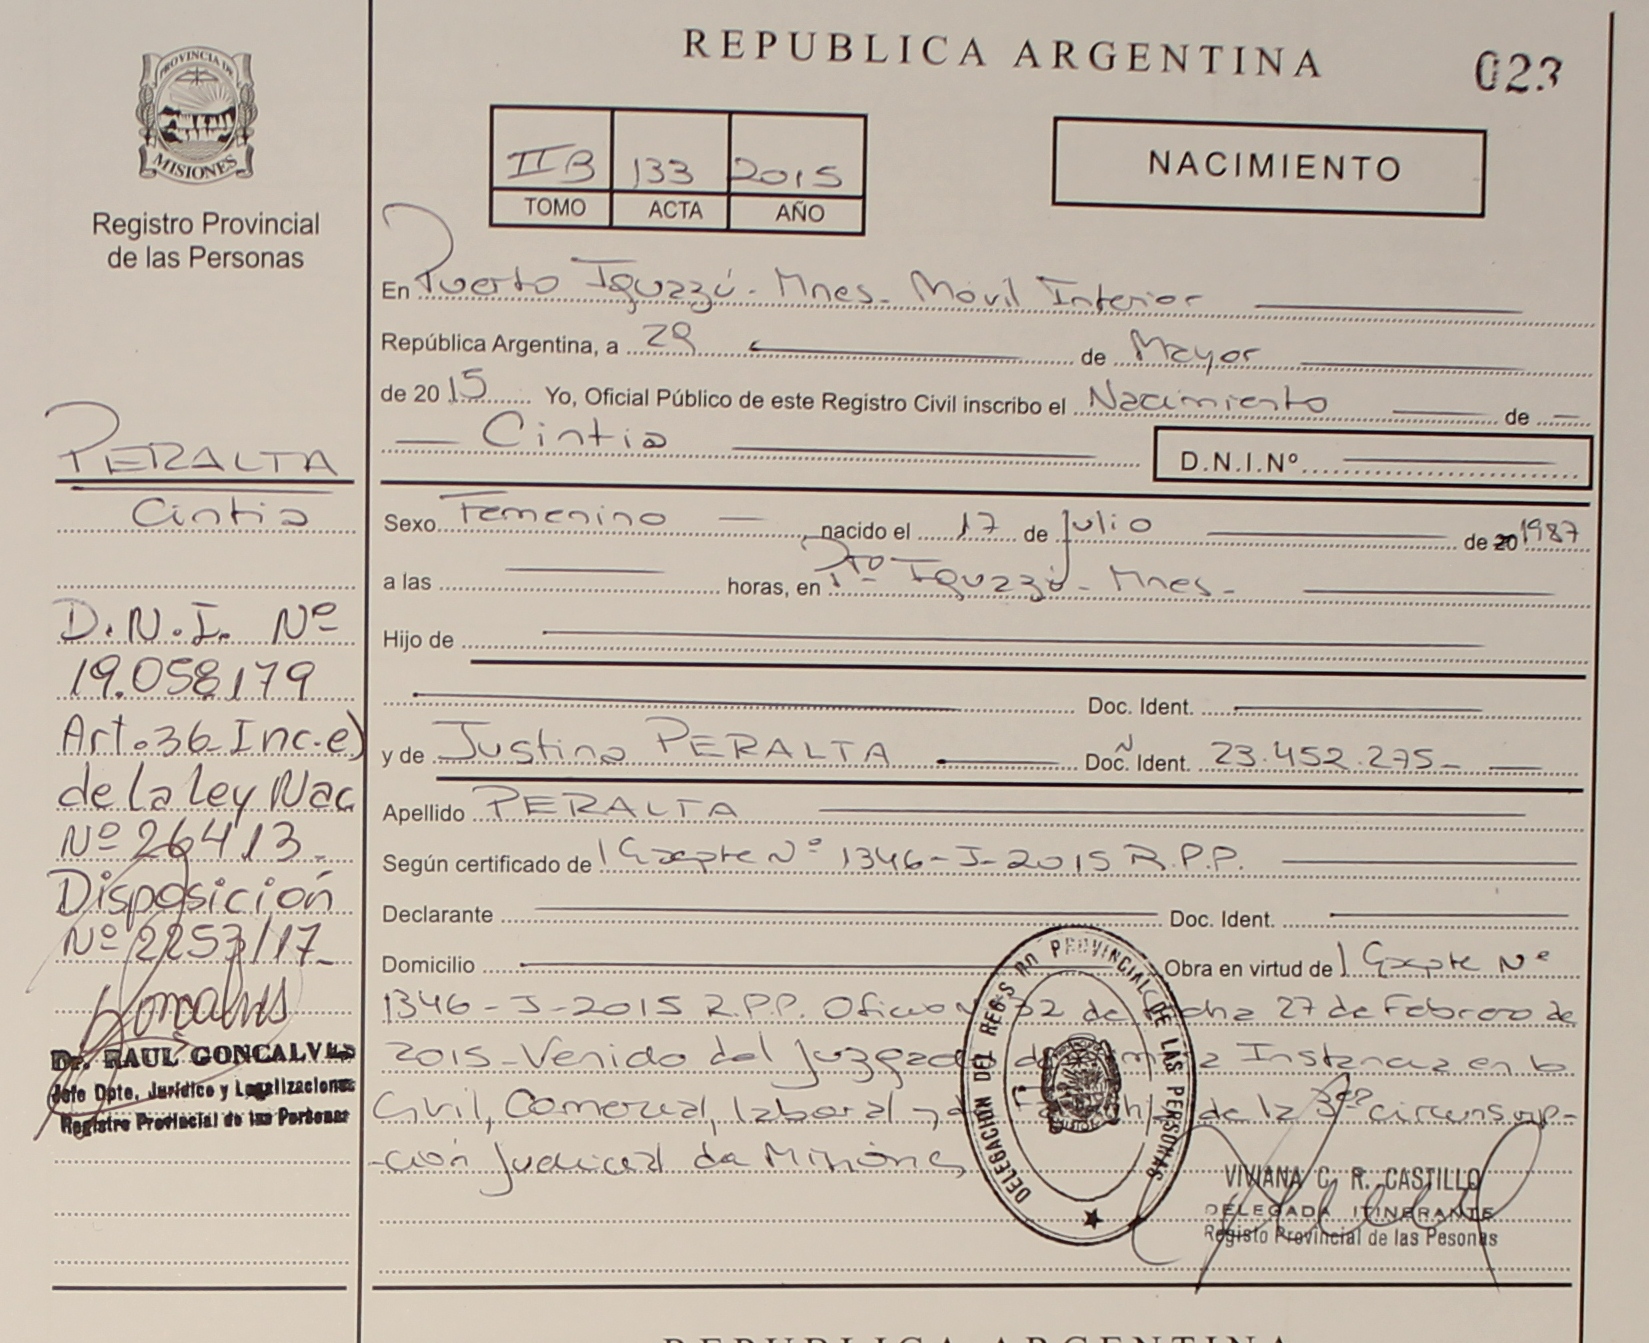 REPUBLICA ARGENTINA
023
PROVINCIA DE
MISIONES
Registro Provincial
de las Personas
IIB 133 2015
TOMO ACTA AÑO
NACIMIENTO
En Puerto Iguazú - Mnes - Móvil Interior
República Argentina, a 28 de Mayor
de 2015 Yo, Oficial Público de este Registro Civil inscribo el Nacimiento de
Cintia
D.N.I.Nº
Sexo Femenino nacido el 17 de Julio de 20 1987
a las horas, en Pto Iguazú - Mnes -
Hijo de
Doc. Ident.
y de Justina PERALTA Doc. Ident. 23.452.275
Apellido PERALTA
Según certificado de Expte Nº 1346-J-2015 R.P.P.
Declarante Doc. Ident.
Domicilio Obra en virtud de Expte Nº
1346-J-2015 R.P.P. Oficio 32 de fecha 27 de Febrero de
2015 - Venido del Juzgado de Instancia en lo
Civil, Comercial, laboral y de de la 3ª circunscrip-
-ción Judicial de Misiones
DELEGACIÓN DEL PROVINCIAL DE LAS PERSONAS
VIVIANA C. R. CASTILLO
DELEGADA ITINERANTE
Registo Provincial de las Pesonas
PERALTA
Cintia
D.N.I. Nº
19.058.179
Art.36 Inc.e)
de la ley Nac
Nº 26413
Disposición
Nº 2253/17
Dr. RAUL GONCALVES
Jefe Dpto. Jurídico y Legalizaciones
Registro Provincial de las Personas
REPUBLICA ARGENTINA